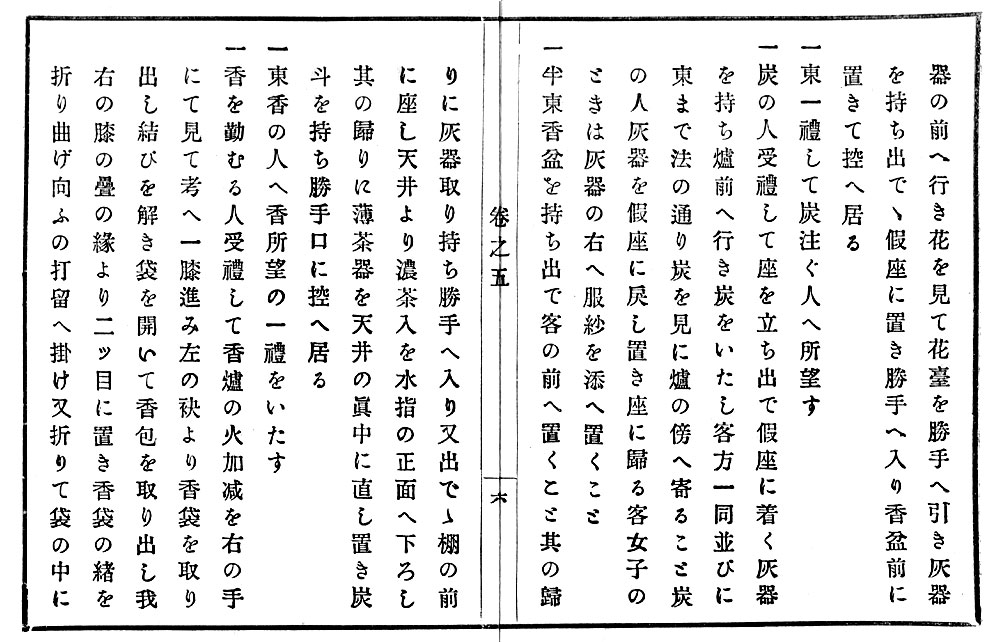 器の前へ行き花を見て花臺を勝手へ引き灰器
を持ち出でゝ假座に置き勝手へ入り香盆前に
置きて控へ居る
一東一禮して炭注ぐ人へ所望す
一炭の人受禮して座を立ち出で假座に着く灰器
を持ち爐前へ行き炭をいたし客方一同並びに
東まで法の通り炭を見に爐の傍へ寄ること炭
の人灰器を假座に戻し置き座に歸る客女子の
ときは灰器の右へ服紗を添へ置くこと
一半東香盆を持ち出で客の前へ置くこと其の歸
卷之五
六
りに灰器取り持ち勝手へ入り又出でゝ棚の前
に座し天井より濃茶入を水指の正面へ下ろし
其の歸りに薄茶器を天井の眞中に直し置き炭
斗を持ち勝手口に控へ居る
一東香の人へ香所望の一禮をいたす
一香を勤むる人受禮して香爐の火加减を右の手
にて見て考へ一膝進み左の袂より香袋を取り
出し結びを解き袋を開いて香包を取り出し我
右の膝の疊の緣より二ッ目に置き香袋の緒を
折り曲げ向ふの打留へ掛け又折りて袋の中に